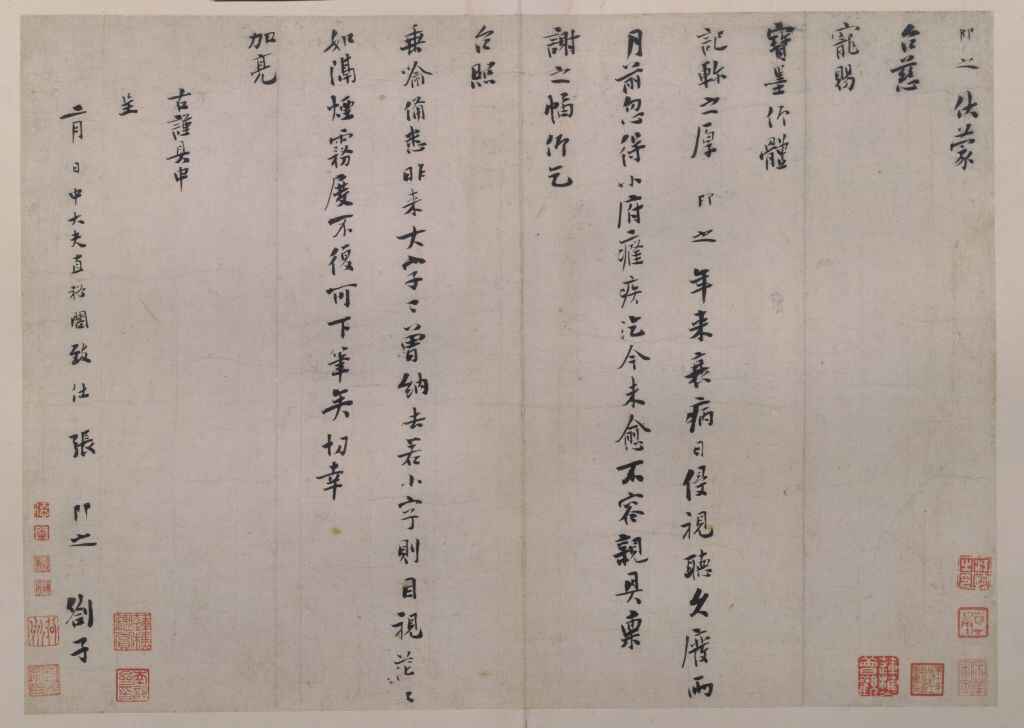 即之伏蒙
台慈
寵賜
寶墨仰體
記軫之厚即之年来衰病日侵視聽久廢兩
月前忽得小府癃疾迄今未愈不容親具稟
謝之幅仰乞
台照
垂諭備悉昨来大字已曾納去若小字則目視茫々
如隔煙霧屢不復可下筆矣切幸
加亮
右謹具申
呈
二月日中大夫直祕閣致仕張即之劄子